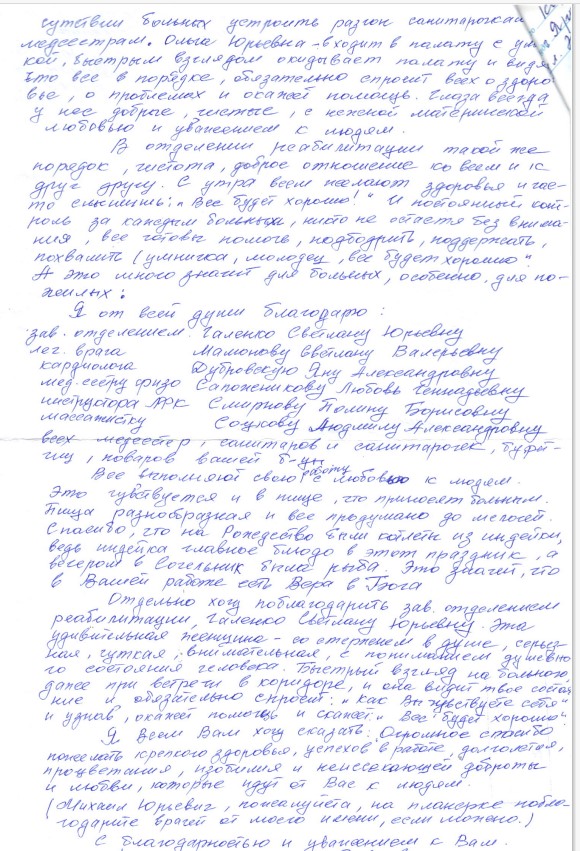 сутствии больных устроить разгон санитарочкам
медсестрам. Ольга Юрьевна - входит в палату с
кой, быстрым взглядом окидывает палату и видя,
что все в порядке, обязательно спросит всех о здоро-
вье, о проблемах и окажет помощь. Глаза всегда
у нее добрые, чистые, с нежной материнской
любовью и уважением к людям.
В отделении реабилитации такой же
порядок, чистота, доброе отношение ко всем и к
друг другу. С утра всем желают здоровья и час-
то слышишь: „Все будет хорошо!" И постоянный конт-
роль за каждым больным, никто не остается без внима-
ния, все готовы помочь, подбодрить, поддержать,
похвалить (умничка, молодец, все будет хорошо".
А это много значит для больных, особенно, для по-
жилых.
Я от всей души благодарю:
зав. отделением Галенко Светлану Юрьевну
леч. врача Мамонову Светлану Валерьевну
кардиолога Дубровскую Яну Александровну
мед. сестру физо Сапоженикову Любовь Геннадьевну
инструктора ЛФК Смирнову Полину Борисовну
массажистку Соцкову Людмилу Александровну
всех медсестер, санитаров и санитарочек, буфет-
чиц, поваров вашей б-цы.
Все выполняют свою работу с любовью к людям.
Это чувствуется и в пище, что приносят больным.
Пища разнообразная и все продумано до мелочей.
Спасибо, что на Рождество были котлеты из индейки,
ведь индейка главное блюдо в этот праздник, а
вечером в Сочельник была рыба. Это значит, что
в Вашей работе есть Вера в Бога
Отдельно хочу поблагодарить зав. отделением
реабилитации, Галенко Светлану Юрьевну. Эта
удивительная женщина - со стержнем в душе, серьез-
ная, чуткая, внимательная, с пониманием душевно-
го состояния человека. Быстрый взгляд на больного,
даже при встречи в коридоре, и она видит твое состоя-
ние и обязательно спросит: „как Вы чувствуете себя"
и узнав, окажет помощь и скажет „Все будет хорошо".
Я Всем Вам хочу сказать: Огромное спасибо
пожелать крепкого здоровья, успехов в работе, долголетия,
процветания, изобилия и неиссекающей доброты
и любви, которые идут от Вас к людям.
(Михаил Юрьевич, пожалуйста, на планерке побла-
годарите врачей от моего имени, если можно.)
С благодарностью и уважением к Вам.